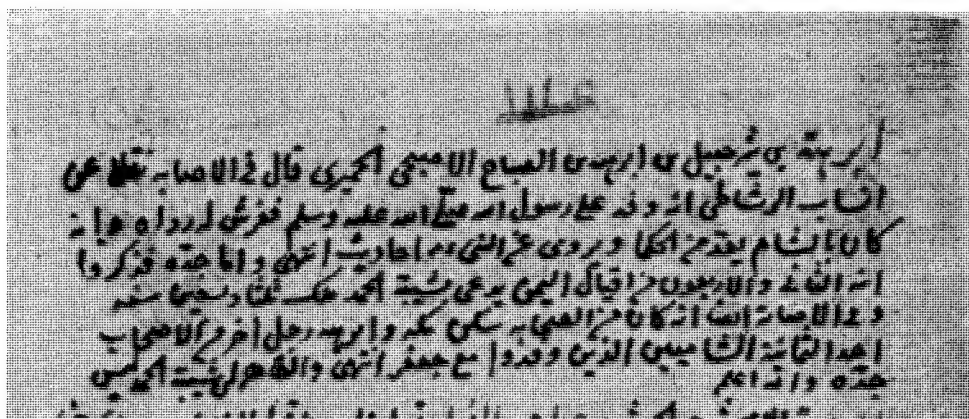 ابرهة بن شرحبيل بن ابرهه بن الصباح الاصبحي الحميري قال في الاصابه نقلا عن
انساب الرشاطي انه وفد على رسول الله صلى الله عليه وسلم ففرش له رداه وانه
كان بالشام يعد من الحكما ويروى عن النبي احاديث انتهى واما جده فذكروا
انه الثاني والاربعون من اقيال اليمن يدعى شيبة الحمد ملك
وفي الاصابة ايضا انه كان من الصحابه سكن مكه وابرهه رجل اخر من الاصحاب
احد الثمانية الشاميين الذين وفدوا مع جعفر انتهى
جده والله اعلم